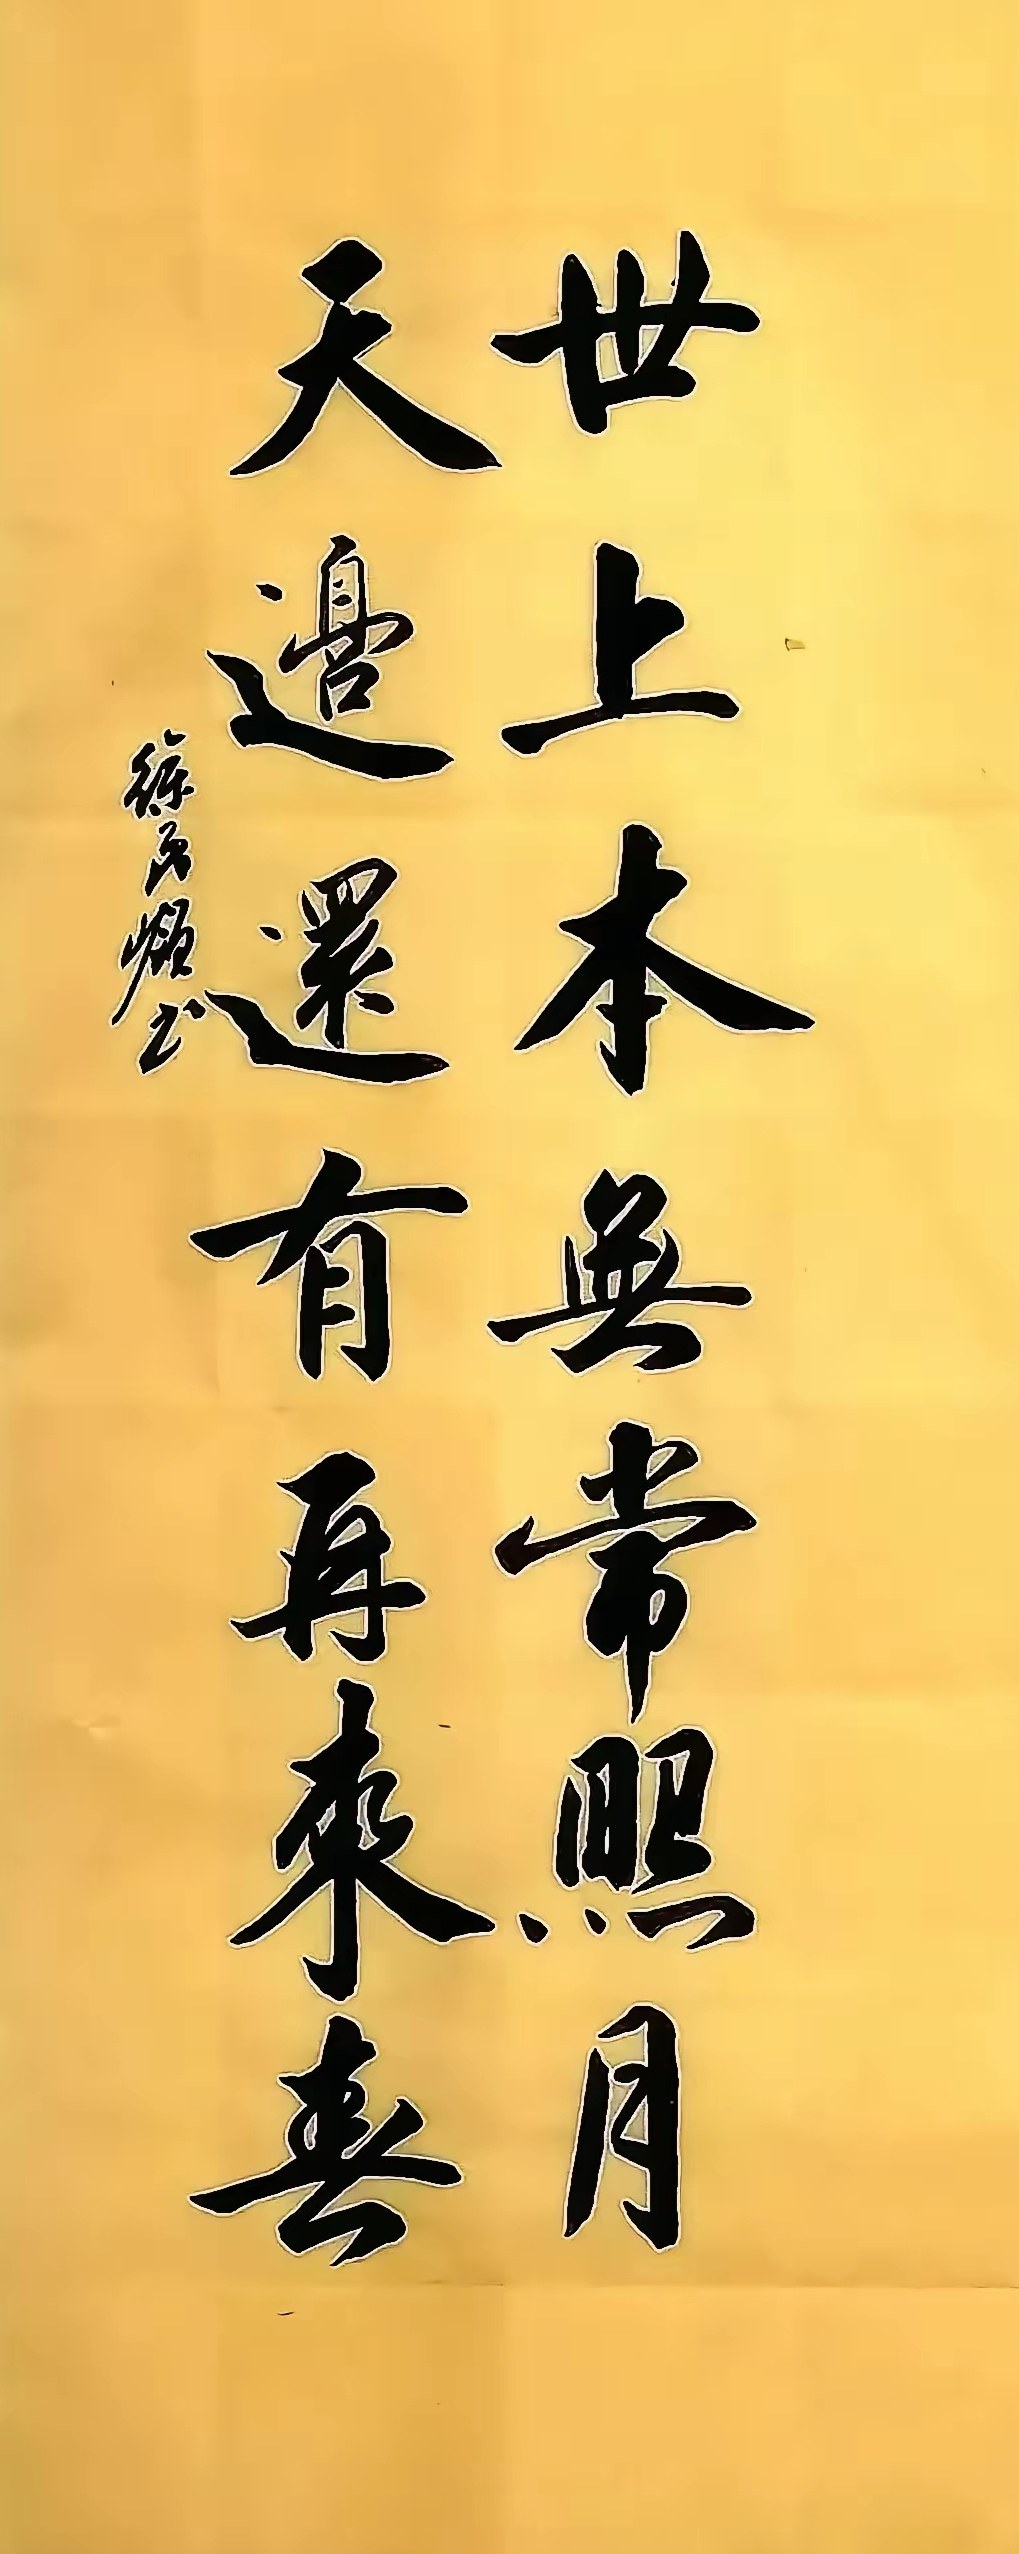 世上本無常照月
天邊還有再來春
徐
书